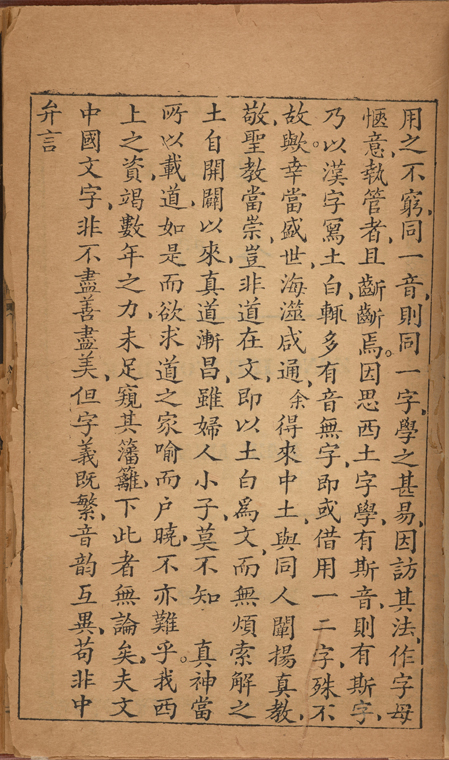 弁言
中國文字、非不盡善盡美、但字義既繁、音韵互異、苟非中
上之資、竭數年之力、未足窺其籓籬、下此者無論矣、夫文
所以載道、如是而欲求道之家喻而户曉、不亦難乎。我西
土自開闢以來、真道漸昌、雖婦人小子、莫不知　真神當
敬、聖教當崇、豈非道在文、即以土白爲文、而無煩索解之
故歟。幸當盛世、海澨咸通、余得來中土、與同人闡揚真教、
乃以漢字寫土白、輒多有音無字、即或借用一二字、殊不
愜意、執管者、且齗齗焉。因思西土字學、有斯音、則有斯字、
用之不窮、同一音、則同一字、學之甚易、因訪其法、作字母